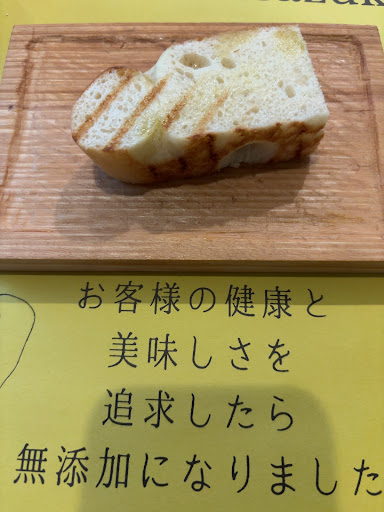 お客様の健康と
美味しさを
追求したら
無添加になりました